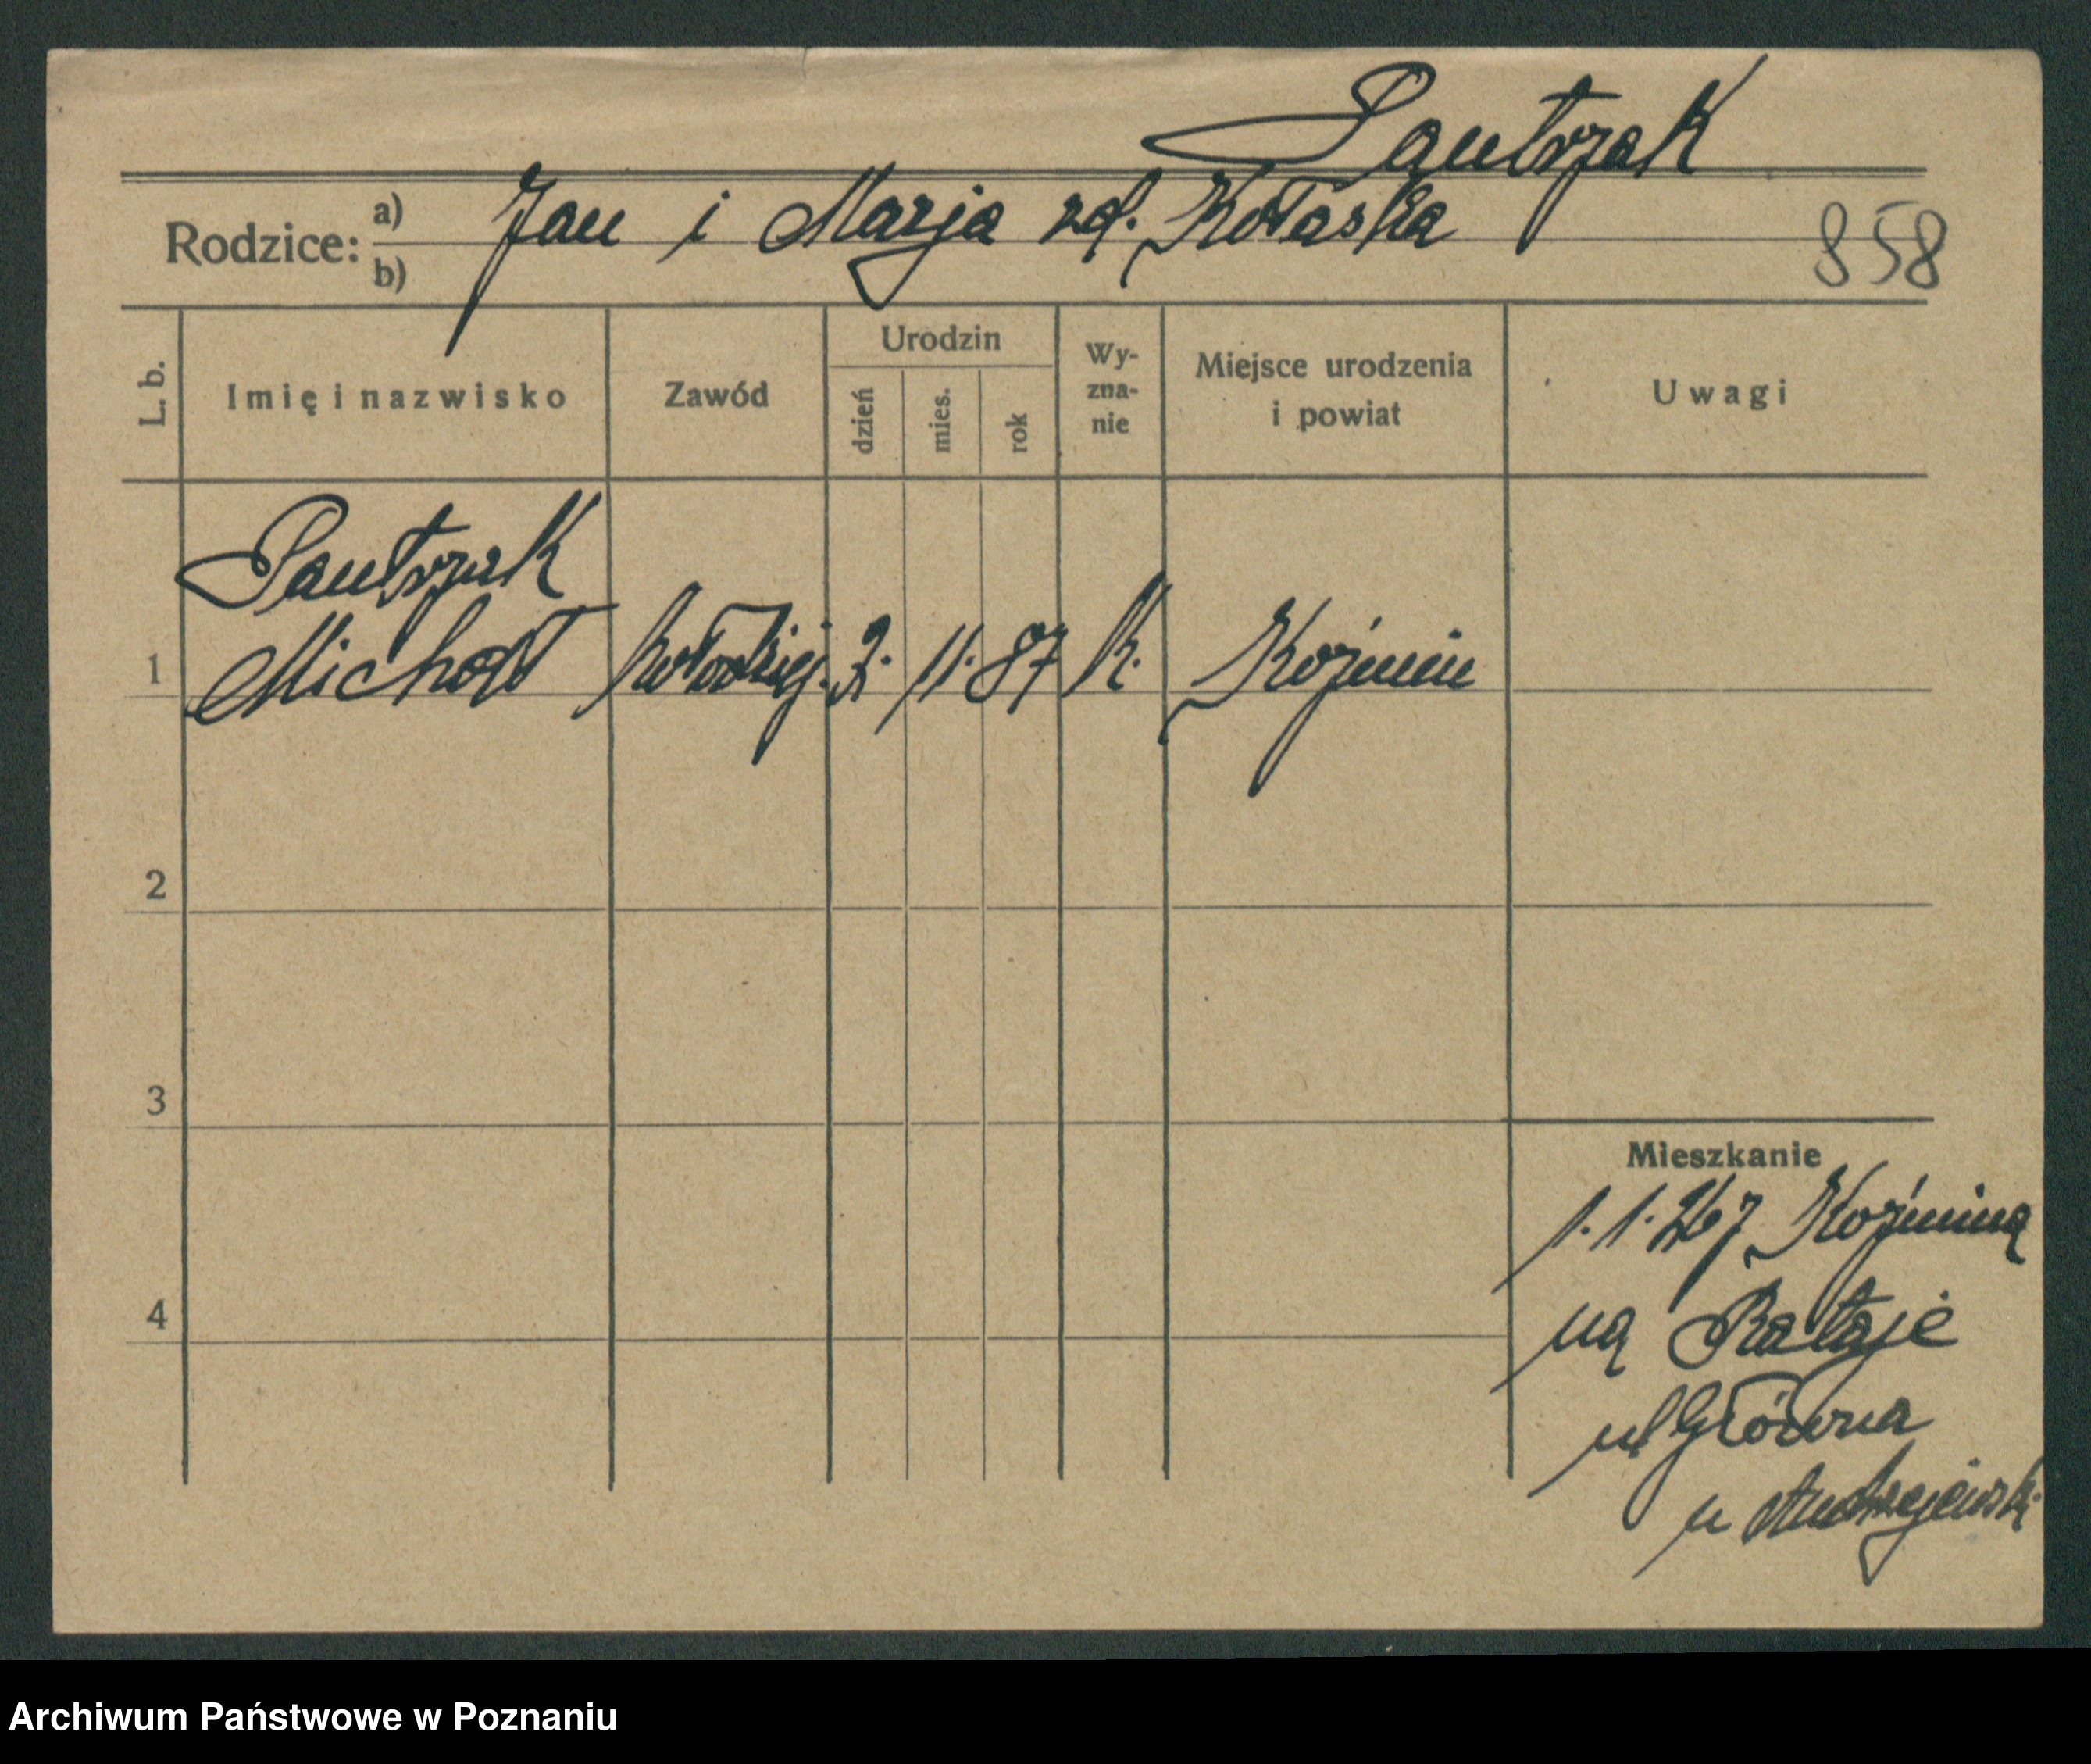 Pautrzak
Rodzice: a) Jan i Marja zd. Kołaska
b)
858
L. b.
Imię i nazwisko
Zawód
Urodzin
dzień
mies.
rok
Wy-
zna-
nie
Miejsce urodzenia
i powiat
Uwagi
Pautrzak
1 Michał kołodziej. 3. 11. 87 k. Koźmin
2
3
4
Mieszkanie
1. 1. 27 Koźmina
na Rataje
ul Główna
u Andrzejewski
Archiwum Państwowe w Poznaniu